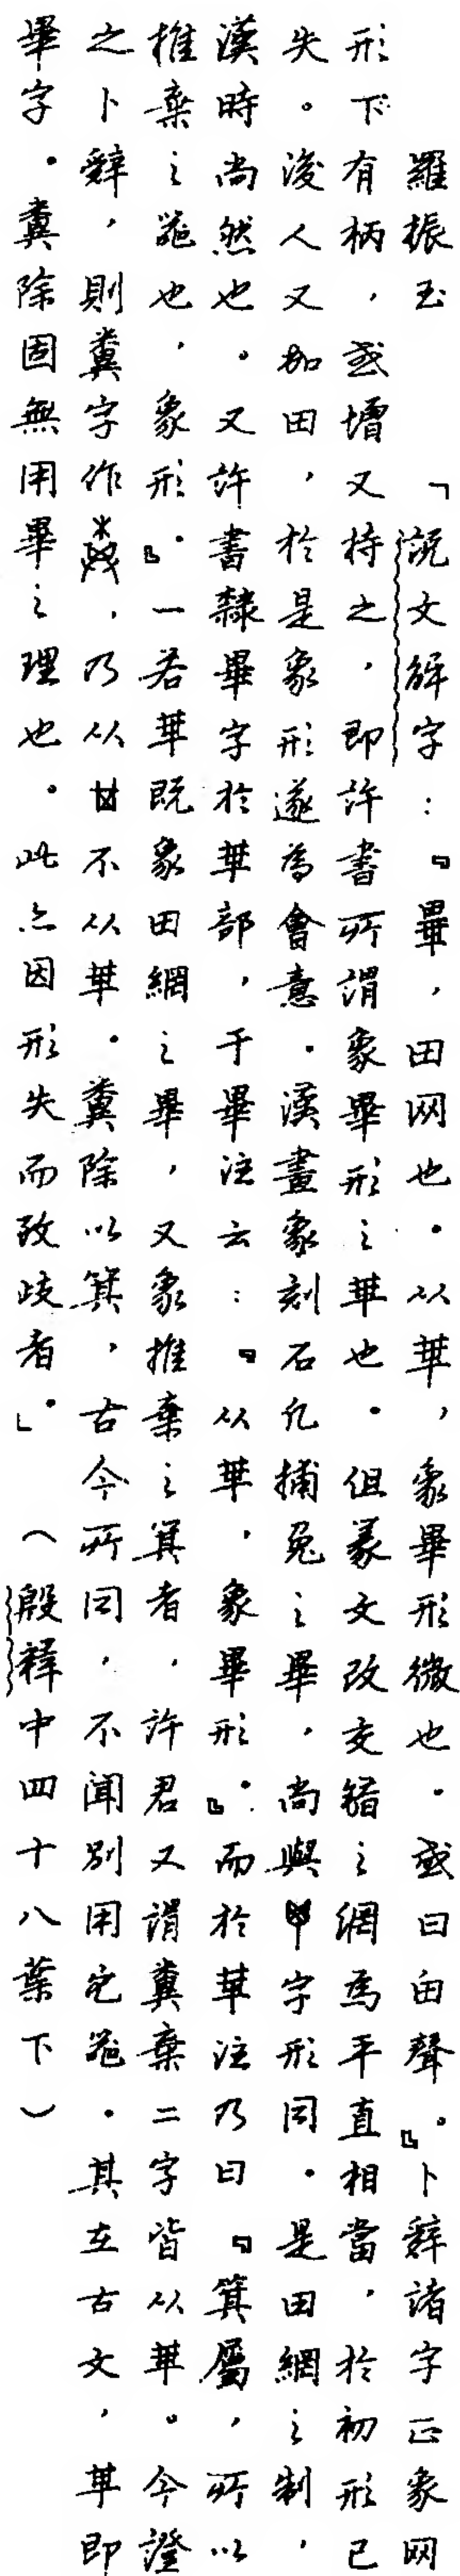 羅振玉　「說文解字：『畢，田网也。从𠦒，象畢形微也。或曰甶聲。』卜辭諸字正象网
形下有柄，或增又持之，即許書所謂象畢形之𠦒也。但篆文改交錯之網為平直相當，於初形已
失。後人又加田，於是象形遂為會意。漢畫象刻石凡捕兔之畢，尚與字形同。是田網之制，
漢時尚然也。又許書隸畢字於𠦒部，于畢注云：『从𠦒，象畢形。』而於𠦒注乃曰『箕屬，所以
推棄之器也，象形。』一若𠦒既象田網之畢，又象推棄之箕者，許君又謂糞棄二字皆从𠦒。今證
之卜辭，則糞字作，乃从𠀠不从𠦒。糞除以箕，古今所同，不聞別用它器。其在古文，𠦒即
畢字。糞除固無用畢之理也。此亦因形失而致歧者。」（殷釋中四十八葉下）